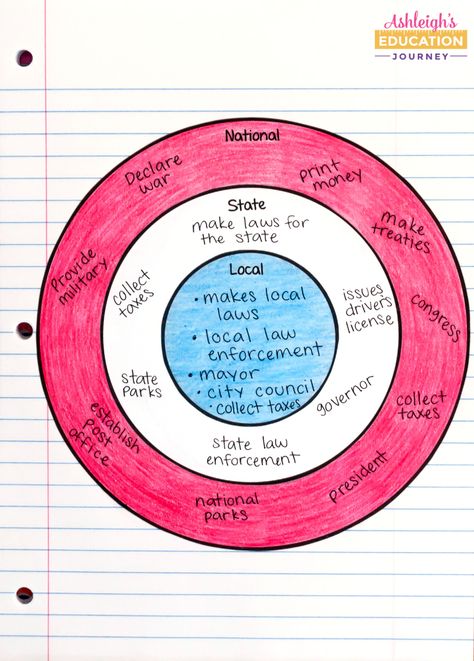 Ashleigh's
EDUCATION
JOURNEY
National
Declare
war
print
money
make
treaties
Provide
military
congress
collect
taxes
establish
post
office
president
national
parks
State
make laws for
the state
collect
taxes
issues
drivers
license
state
parks
governor
state law
enforcement
Local
• makes local
laws
• local law
enforcement
• mayor
• city council
• collect taxes